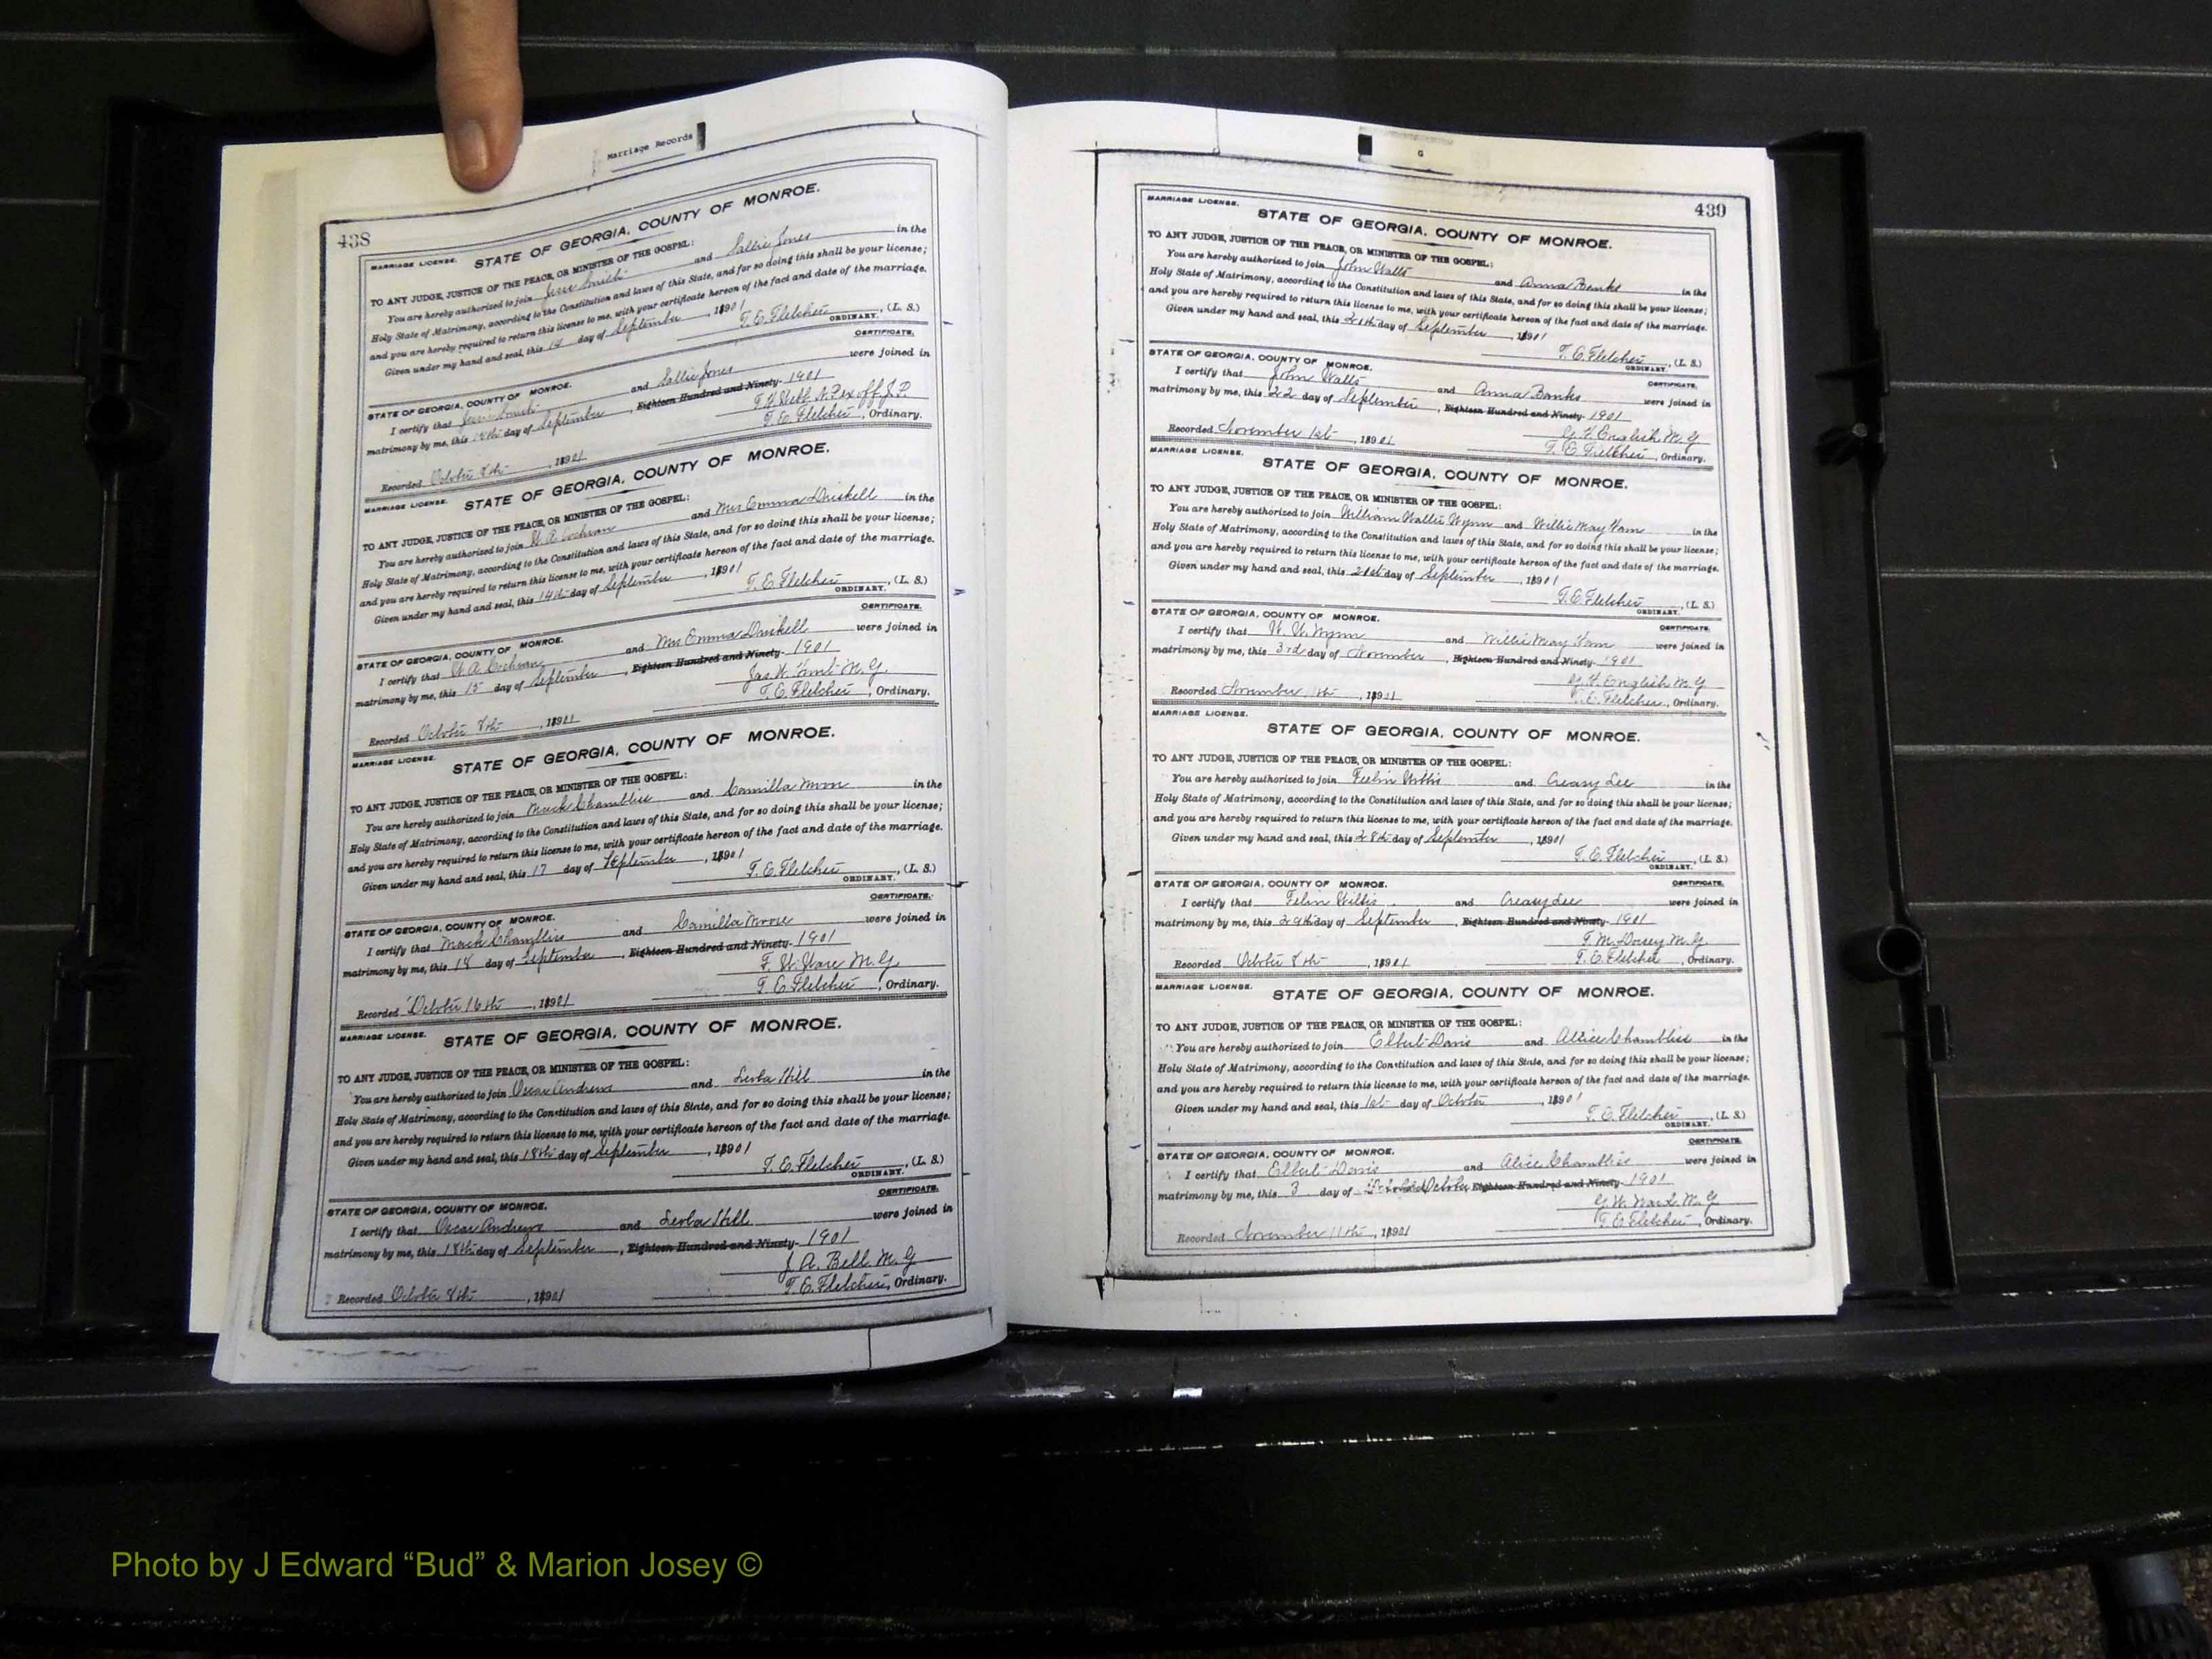 Marriage Records
438
MARRIAGE LICENSE.
STATE OF GEORGIA, COUNTY OF MONROE.
TO ANY JUDGE, JUSTICE OF THE PEACE, OR MINISTER OF THE GOSPEL:
You are hereby authorized to join Jesse Smith and Sallie Jones in the
Holy State of Matrimony, according to the Constitution and laws of this State, and for so doing this shall be your license;
and you are hereby required to return this license to me, with your certificate hereon of the fact and date of the marriage.
Given under my hand and seal, this 14 day of September, 1901
T. E. Fletcher, (L. S.)
ORDINARY.
CERTIFICATE.
STATE OF GEORGIA, COUNTY OF MONROE.
I certify that Jesse Smith and Sallie Jones were joined in
matrimony by me, this day of September, Eighteen Hundred and Ninety- 1901
N. P. ex off J. P.
Recorded October 8th, 1901 T. E. Fletcher, Ordinary.
MARRIAGE LICENSE.
STATE OF GEORGIA, COUNTY OF MONROE.
TO ANY JUDGE, JUSTICE OF THE PEACE, OR MINISTER OF THE GOSPEL:
You are hereby authorized to join W. A. Cochran and Mrs Emma Driskell in the
Holy State of Matrimony, according to the Constitution and laws of this State, and for so doing this shall be your license;
and you are hereby required to return this license to me, with your certificate hereon of the fact and date of the marriage.
Given under my hand and seal, this 14th day of September, 1901
T. E. Fletcher, (L. S.)
ORDINARY.
CERTIFICATE.
STATE OF GEORGIA, COUNTY OF MONROE.
I certify that W. A. Cochran and Mrs Emma Driskell were joined in
matrimony by me, this 15 day of September, Eighteen Hundred and Ninety- 1901
Jas. W. M. G.
Recorded October 8th, 1901 T. E. Fletcher, Ordinary.
MARRIAGE LICENSE.
STATE OF GEORGIA, COUNTY OF MONROE.
TO ANY JUDGE, JUSTICE OF THE PEACE, OR MINISTER OF THE GOSPEL:
You are hereby authorized to join Mack Chambliss and Camilla Moore in the
Holy State of Matrimony, according to the Constitution and laws of this State, and for so doing this shall be your license;
and you are hereby required to return this license to me, with your certificate hereon of the fact and date of the marriage.
Given under my hand and seal, this 17 day of September, 1901
T. E. Fletcher, (L. S.)
ORDINARY.
CERTIFICATE.
STATE OF GEORGIA, COUNTY OF MONROE.
I certify that Mack Chambliss and Camilla Moore were joined in
matrimony by me, this 18 day of September, Eighteen Hundred and Ninety- 1901
F. W. Ware M. G.
Recorded October 16th, 1901 T. E. Fletcher, Ordinary.
MARRIAGE LICENSE.
STATE OF GEORGIA, COUNTY OF MONROE.
TO ANY JUDGE, JUSTICE OF THE PEACE, OR MINISTER OF THE GOSPEL:
You are hereby authorized to join Oscar Andrews and Hill in the
Holy State of Matrimony, according to the Constitution and laws of this State, and for so doing this shall be your license;
and you are hereby required to return this license to me, with your certificate hereon of the fact and date of the marriage.
Given under my hand and seal, this 18th day of September, 1901
T. E. Fletcher, (L. S.)
ORDINARY.
CERTIFICATE.
STATE OF GEORGIA, COUNTY OF MONROE.
I certify that Oscar Andrews and Hill were joined in
matrimony by me, this 18th day of September, Eighteen Hundred and Ninety- 1901
J. A. Bell M. G.
Recorded October 8th, 1901 T. E. Fletcher, Ordinary.
G
439
MARRIAGE LICENSE.
STATE OF GEORGIA, COUNTY OF MONROE.
TO ANY JUDGE, JUSTICE OF THE PEACE, OR MINISTER OF THE GOSPEL:
You are hereby authorized to join John Watts and Anna Banks in the
Holy State of Matrimony, according to the Constitution and laws of this State, and for so doing this shall be your license;
and you are hereby required to return this license to me, with your certificate hereon of the fact and date of the marriage.
Given under my hand and seal, this day of September, 1901
T. E. Fletcher, (L. S.)
ORDINARY.
CERTIFICATE.
STATE OF GEORGIA, COUNTY OF MONROE.
I certify that John Watts and Anna Banks were joined in
matrimony by me, this 22 day of September, Eighteen Hundred and Ninety- 1901
G. W. English, M. G.
Recorded November 1st, 1901 T. E. Fletcher, Ordinary.
MARRIAGE LICENSE.
STATE OF GEORGIA, COUNTY OF MONROE.
TO ANY JUDGE, JUSTICE OF THE PEACE, OR MINISTER OF THE GOSPEL:
You are hereby authorized to join William Wallis Wynn and Willie May Ham in the
Holy State of Matrimony, according to the Constitution and laws of this State, and for so doing this shall be your license;
and you are hereby required to return this license to me, with your certificate hereon of the fact and date of the marriage.
Given under my hand and seal, this 21st day of September, 1901
T. E. Fletcher, (L. S.)
ORDINARY.
CERTIFICATE.
STATE OF GEORGIA, COUNTY OF MONROE.
I certify that W. W. Wynn and Willie May Ham were joined in
matrimony by me, this 3rd day of November, Eighteen Hundred and Ninety- 1901
G. W. English M. G.
Recorded November, 1901 T. E. Fletcher, Ordinary.
MARRIAGE LICENSE.
STATE OF GEORGIA, COUNTY OF MONROE.
TO ANY JUDGE, JUSTICE OF THE PEACE, OR MINISTER OF THE GOSPEL:
You are hereby authorized to join Willis and Creasy Lee in the
Holy State of Matrimony, according to the Constitution and laws of this State, and for so doing this shall be your license;
and you are hereby required to return this license to me, with your certificate hereon of the fact and date of the marriage.
Given under my hand and seal, this 28th day of September, 1901
T. E. Fletcher, (L. S.)
ORDINARY.
CERTIFICATE.
STATE OF GEORGIA, COUNTY OF MONROE.
I certify that Willis and Creasy Lee were joined in
matrimony by me, this 29th day of September, Eighteen Hundred and Ninety- 1901
T. M. Dorsey M. G.
Recorded October 8th, 1901 T. E. Fletcher, Ordinary.
MARRIAGE LICENSE.
STATE OF GEORGIA, COUNTY OF MONROE.
TO ANY JUDGE, JUSTICE OF THE PEACE, OR MINISTER OF THE GOSPEL:
You are hereby authorized to join Elbert Davis and Allice Chambliss in the
Holy State of Matrimony, according to the Constitution and laws of this State, and for so doing this shall be your license;
and you are hereby required to return this license to me, with your certificate hereon of the fact and date of the marriage.
Given under my hand and seal, this 1st day of October, 1901
T. E. Fletcher, (L. S.)
ORDINARY.
CERTIFICATE.
STATE OF GEORGIA, COUNTY OF MONROE.
I certify that Elbert Davis and Alice Chambliss were joined in
matrimony by me, this 3 day of October Eighteen Hundred and Ninety- 1901
G. W. Ward M. G.
Recorded November 11th, 1901 T. E. Fletcher, Ordinary.
Photo by J Edward “Bud” & Marion Josey ©